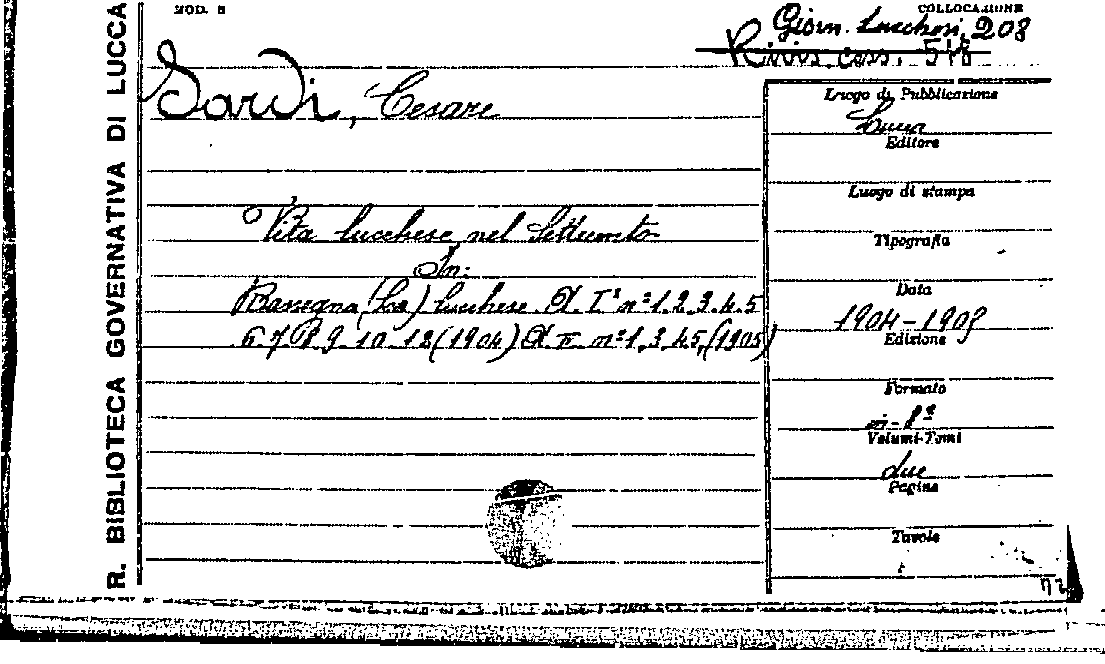 MOD. 8
COLLOCAZIONE
Giorn. Lucchesi, 208
Rivis. cass. 548
R. BIBLIOTECA GOVERNATIVA DI LUCCA
Sardi, Cesare
Vita lucchese nel Settecento
In:
Rassegna (La) lucchese. A. I° n° 1.2.3.4.5
6.7.8.9.10-12 (1904) A. II n° 1,3.45, (1905)
Luogo di Pubblicazione
Lucca
Editore
Luogo di stampa
Tipografia
Data
1904-1905
Edizione
Formato
in-8°
Volumi-Tomi
due
Pagine
Tavole